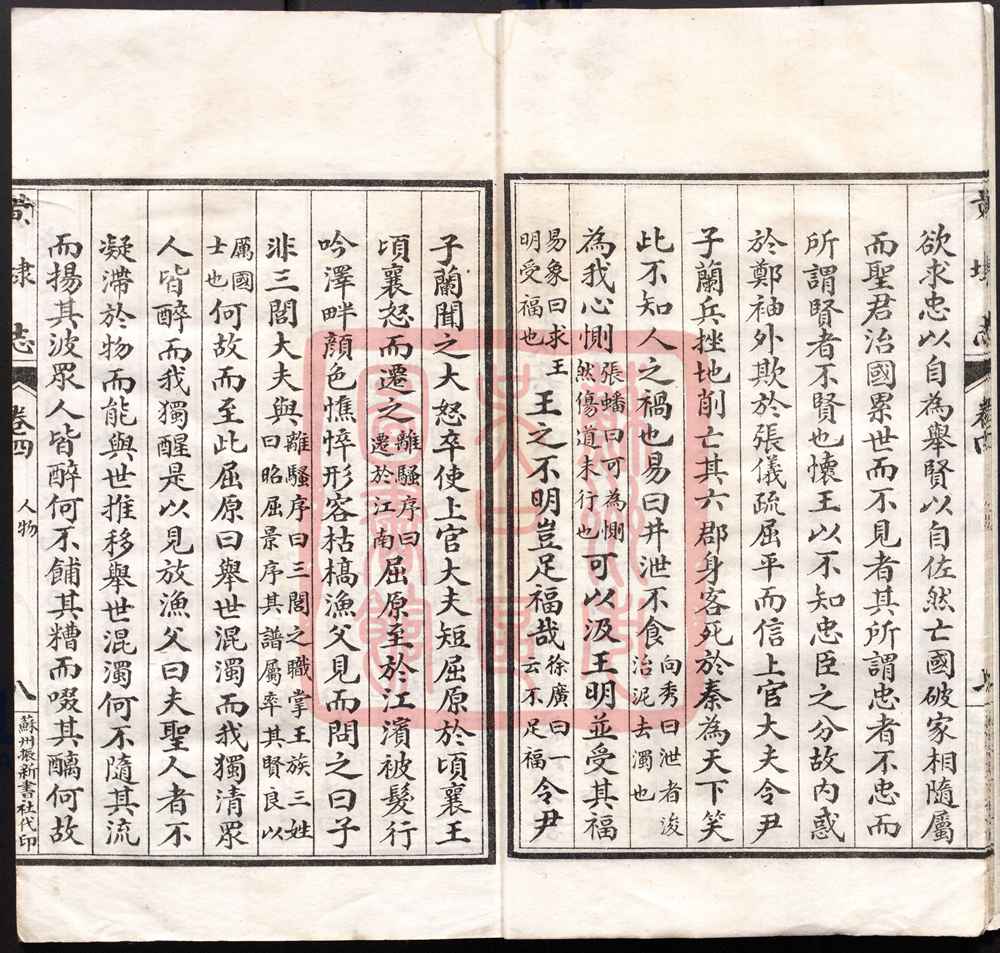 欲求忠以自為舉賢以自佐然亡國破家相隨屬
而聖君治國累世而不見者其所謂忠者不忠而
所謂賢者不賢也懷王以不知忠臣之分故內惑
於鄭袖外欺於張儀疏屈平而信上官大夫令尹
子蘭兵挫地削亡其六郡身客死於秦為天下笑
此不知人之禍也易曰井泄不食向秀曰泄者浚治泥去濁也
為我心惻張璠曰可為惻然傷道未行也可以汲王明並受其福
易象曰求王明受福也王之不明豈足福哉徐廣曰一云不足福令尹
子蘭聞之大怒卒使上官大夫短屈原於頃襄王
頃襄怒而遷之離騷序曰遷於江南屈原至於江濱被髮行
吟澤畔顏色憔悴形容枯槁漁父見而問之曰子
非三閭大夫與離騷序曰三閭之職掌王族三姓曰昭屈景序其譜屬率其賢良以
厲國士也何故而至此屈原曰舉世混濁而我獨清眾
人皆醉而我獨醒是以見放漁父曰夫聖人者不
凝滯於物而能與世推移舉世混濁何不隨其流
而揚其波眾人皆醉何不餔其糟而啜其醨何故
志 卷四 人物 八 蘇州振新書社代印